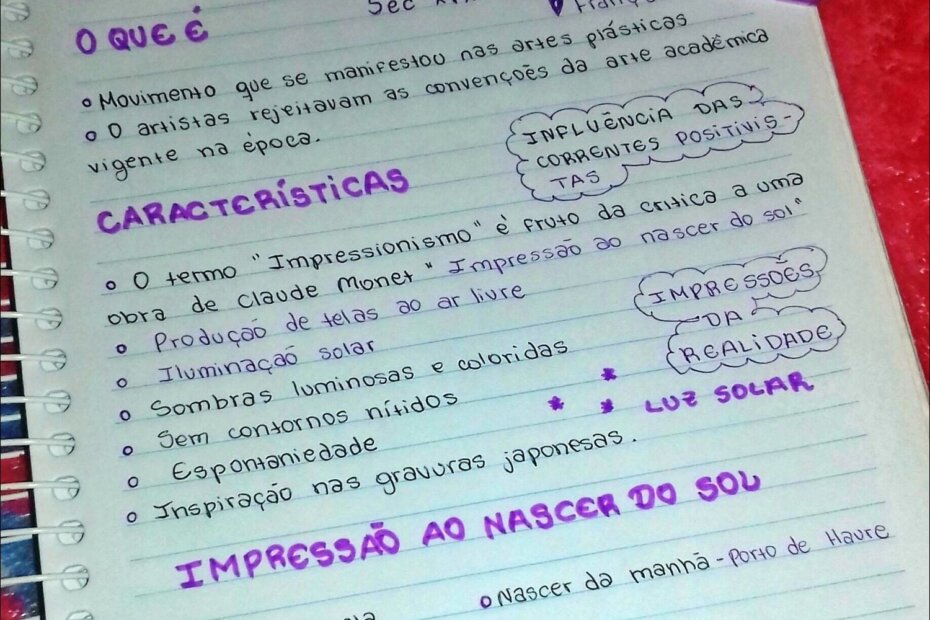 Sec
O QUE É
• Movimento que se manifestou nas artes plásticas
• O artistas rejeitavam as convenções da arte acadêmica
vigente na época.
INFLUÊNCIA DAS
CORRENTES POSITIVIS-
TAS
CARACTERÍSTICAS
• O termo "Impressionismo" é fruto da critica a uma
obra de Claude Monet "Impressão ao nascer do sol"
• Produção de telas ao ar livre
• Iluminação solar
IMPRESSÕES
DA
REALIDADE
• Sombras luminosas e coloridas
• Sem contornos nítidos
* * * LUZ SOLAR
• Espontaniedade
• Inspiração nas gravuras japonesas.
IMPRESSÃO AO NASCER DO SOL
• Nascer da manhã - Porto de Havre